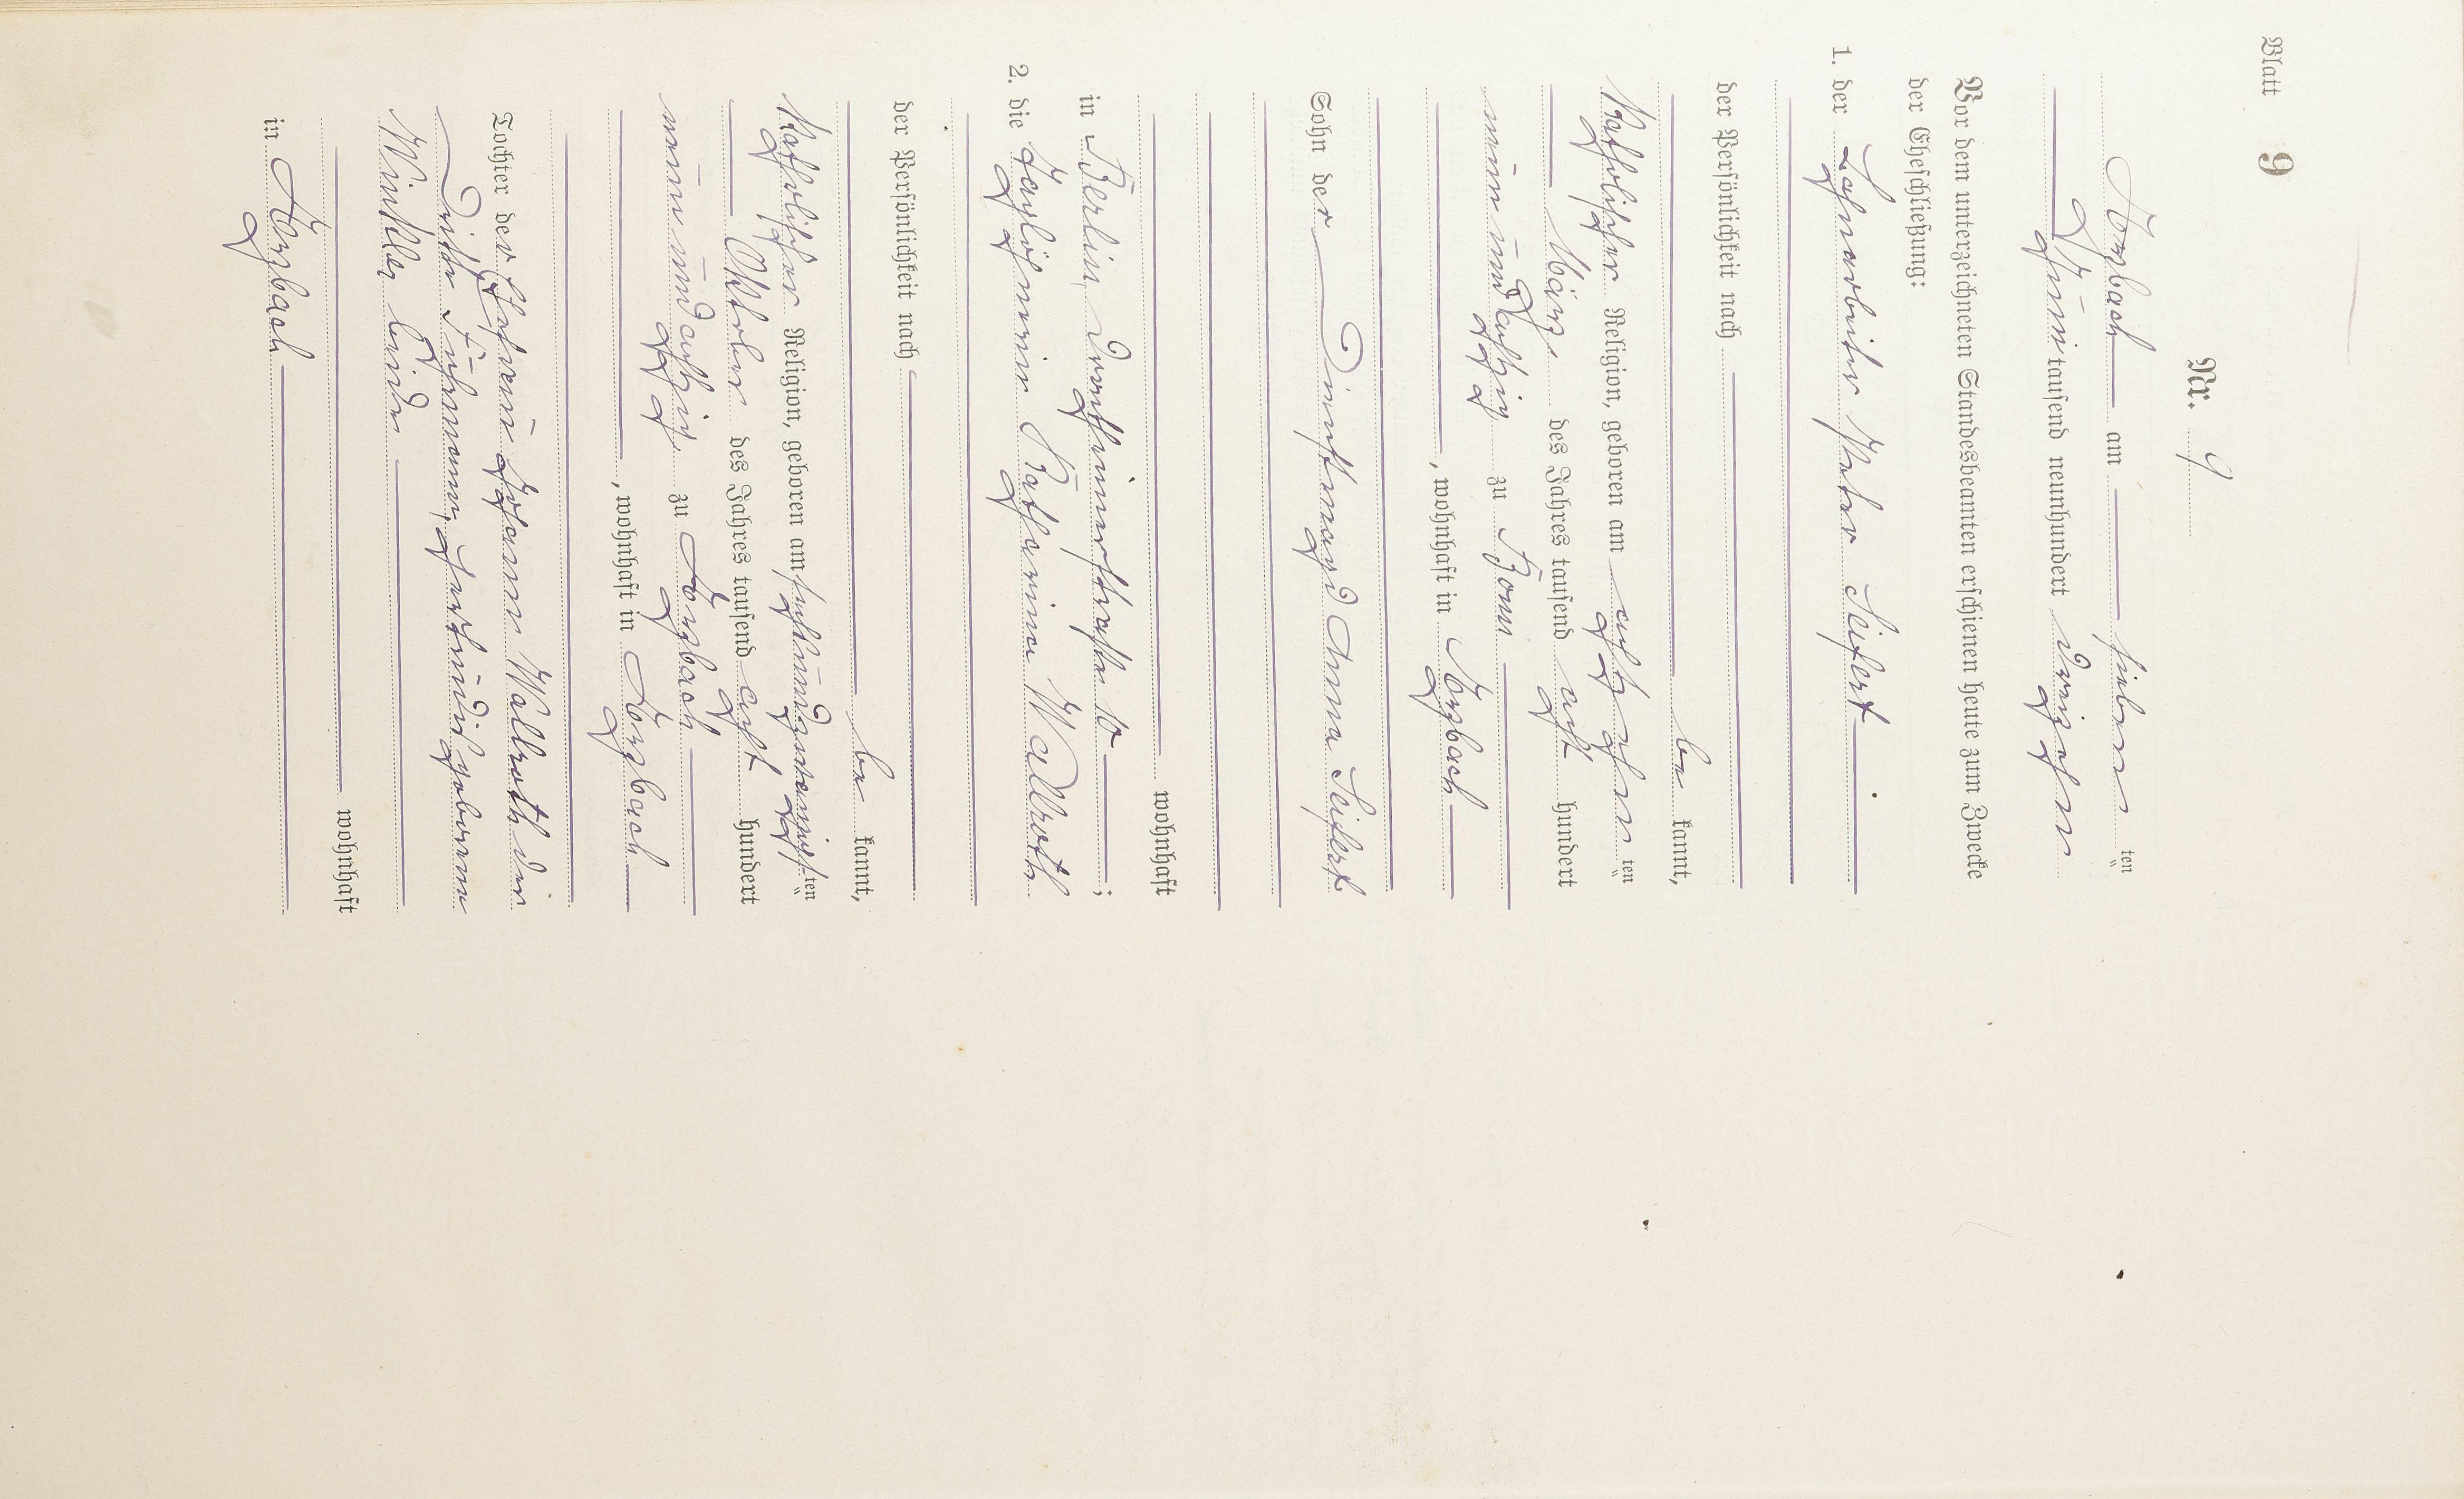 Blatt 9
Nr. 9
Korzbach am sieben ten
Juni tausend neunhundert dreizehn
Vor dem unterzeichneten Standesbeamten erschienen heute zum Zwecke
der Eheschließung:
1. der Lohnarbeiter Peter Seifert
der Persönlichkeit nach
be kannt,
katholischer Religion, geboren am achtzehn ten
März des Jahres tausend acht hundert
neunundachtzig zu Bonn
, wohnhaft in Korzbach
Sohn der Dienstmagd Anna Seifert
wohnhaft
in Berlin, 10 ;
2. die Taglöhnerin Katharina Wallroth
der Persönlichkeit nach
be kannt,
katholischer Religion, geboren am sechsundzwanzigsten
Oktober des Jahres tausend acht hundert
neunundachtzig zu Korzbach
, wohnhaft in Korzbach
Tochter der Johann Wallroth
geborenen
Winkler beide
wohnhaft
in Korzbach